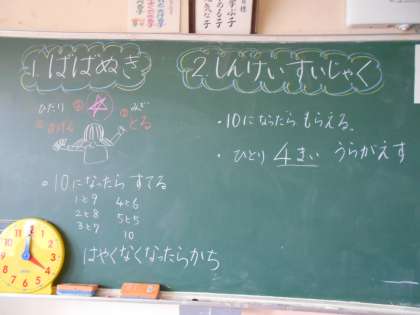 1.ばばぬき
ひだり
みぎ
とる
○10になったら すてる
1と9 4と6
2と8 5と5
3と7 10
はやくなくなったらかち
2.しんけいすいじゃく
・10になったら もらえる。
・ひとり 4まい うらがえす